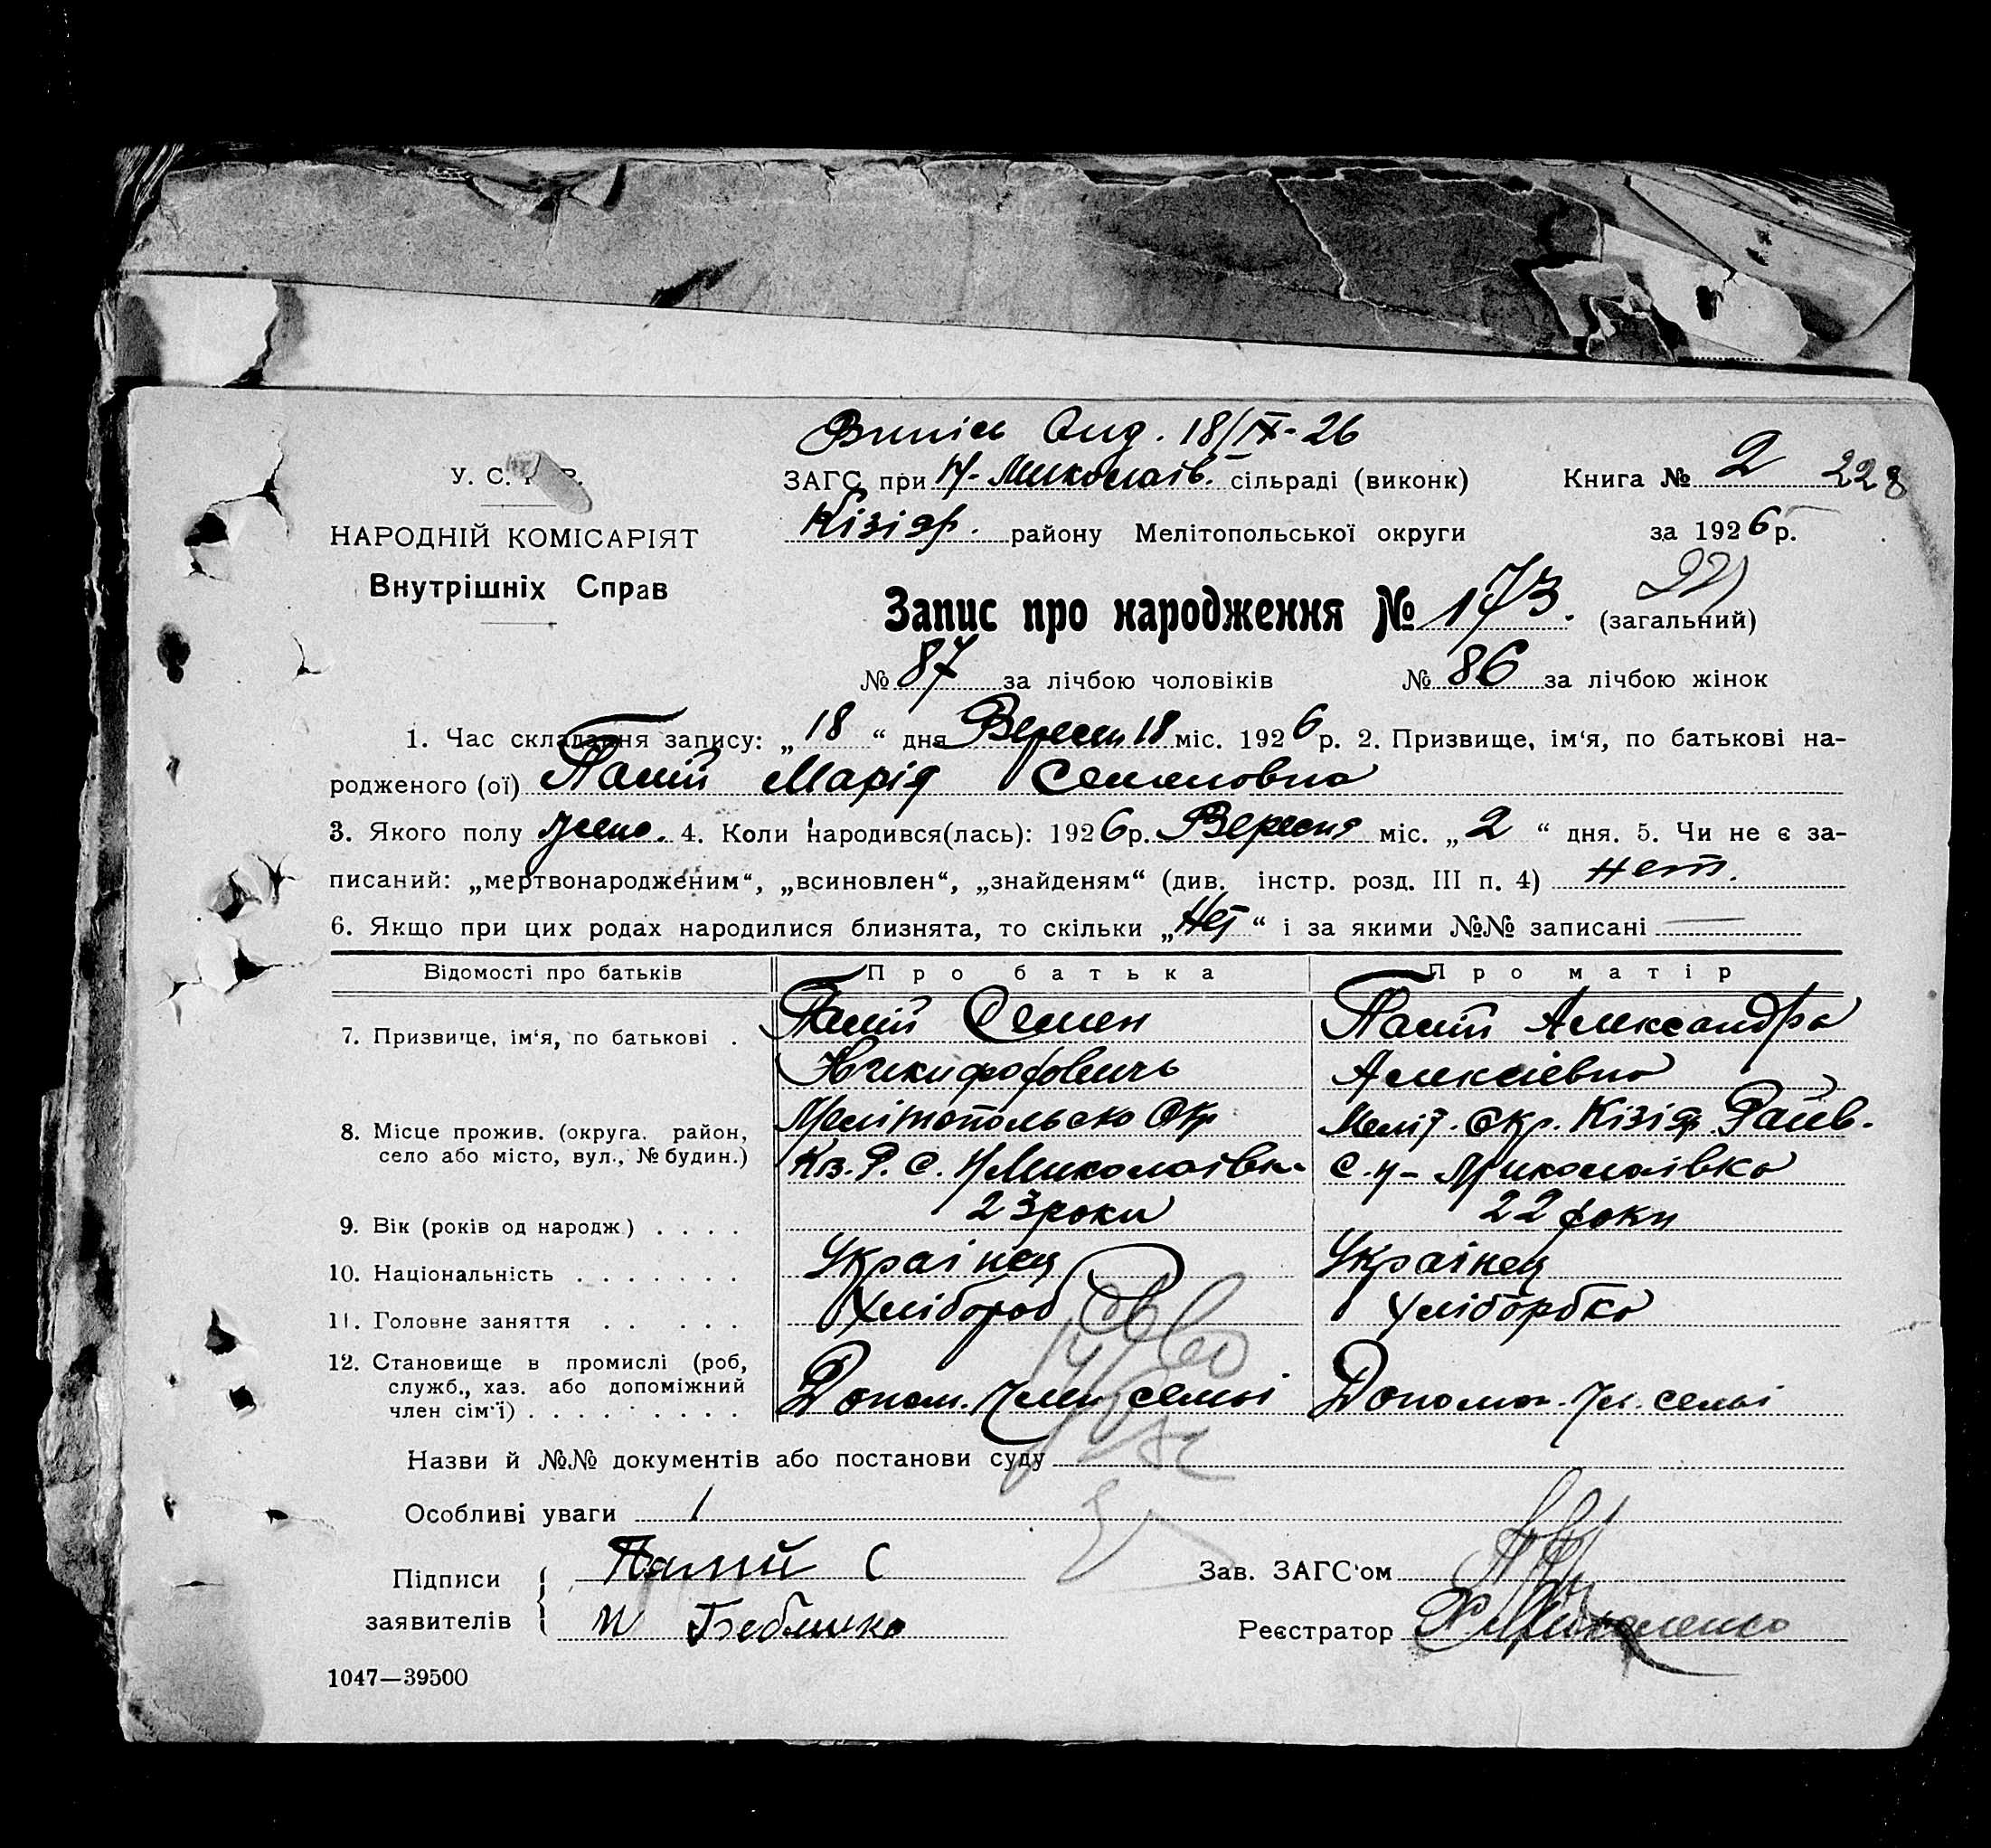 Випись Вид. 18/IX-26
У. С.
ЗАГС при Н-Миколаїв. сільраді (виконк) Книга № 2 228
НАРОДНІЙ КОМІСАРІЯТ
Кізіяр. району Мелітопольської округи за 1926 р.
Внутрішніх Справ
Запис про народження № 173. (загальний)
№ 87 за лічбою чоловіків № 86 за лічбою жінок
1. Час складання запису: „18“ дня Вересня 18 міс. 1926 р. 2. Призвище, ім‘я, по батькові на-
родженого (ої) Палій Марія Семеновна
3. Якого полу жено. 4. Коли народився(лась): 1926 р. Вересня міс. „2“ дня. 5. Чи не є за-
писаний: „мертвонародженим“, „всиновлен“, „знайденям“ (див. інстр. розд. III п. 4) нет.
6. Якщо при цих родах народилися близнята, то скільки „Нет“ і за якими №№ записані
Відомості про батьків Про батька Про матір
7. Призвище, ім‘я, по батькові . Палій Семен Палій Александра
Никифоровичь Алексієвна
8. Місце прожив. (округа. район, Мелітопольско Окр. Меліт. Окр. Кізіяр. Раїв.
село або місто, вул., № будин.) Кз. Р. С. Н Миколаївк. С. Н- Миколаївка
9. Вік (років од народж) . . . . 23 роки 22 роки
10. Національність . . . . . . . Українец Українец
11. Головне заняття . . . . . Хлібороб Хліборобка
12. Становище в промислі (роб, служб., хаз. або допоміжний
член сім‘ї) . . . . . . . . . Допом. член семьі Допомон. чл. семьі
Назви й №№ документів або постанови суду
Особливі уваги
Підписи Палій С Зав. ЗАГС‘ом
заявителів Реєстратор
1047—39500